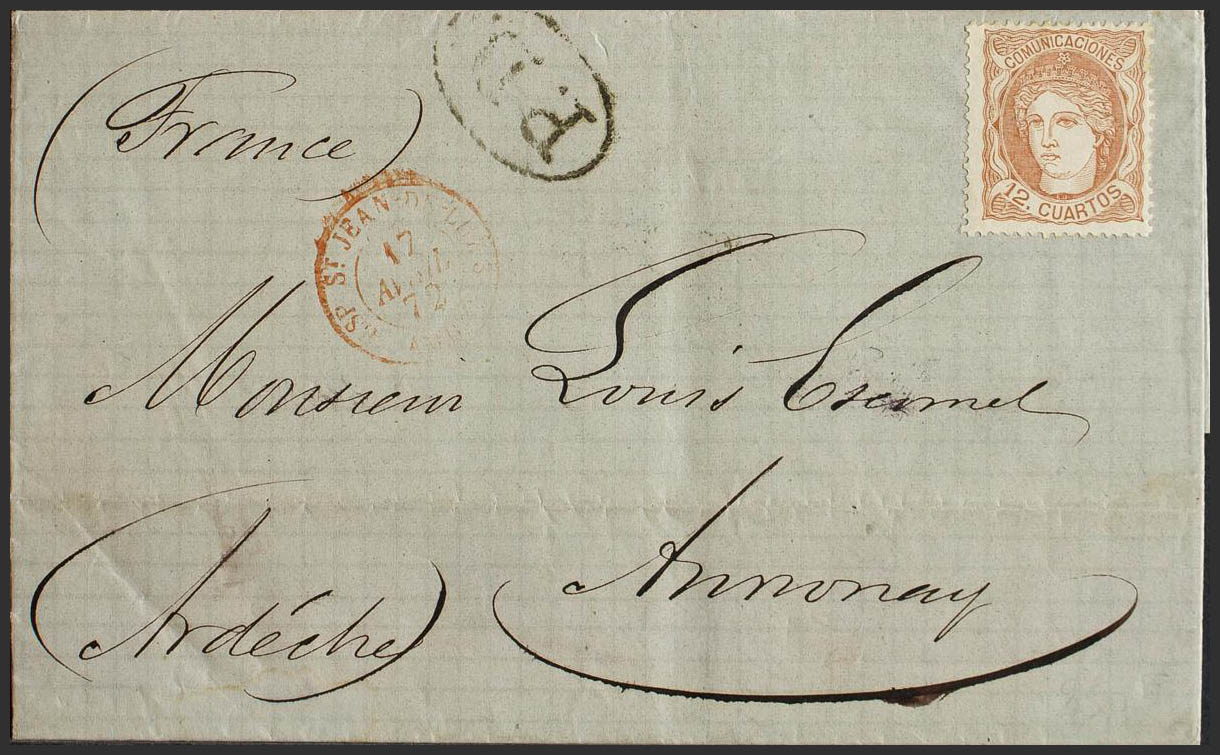 COMUNICACIONES
12. CUARTOS
(France)
ESP. ST. JEAN-DE-LUZ
17
AVRIL
72
Monsieur Louis
Annonay
(Ardéche)